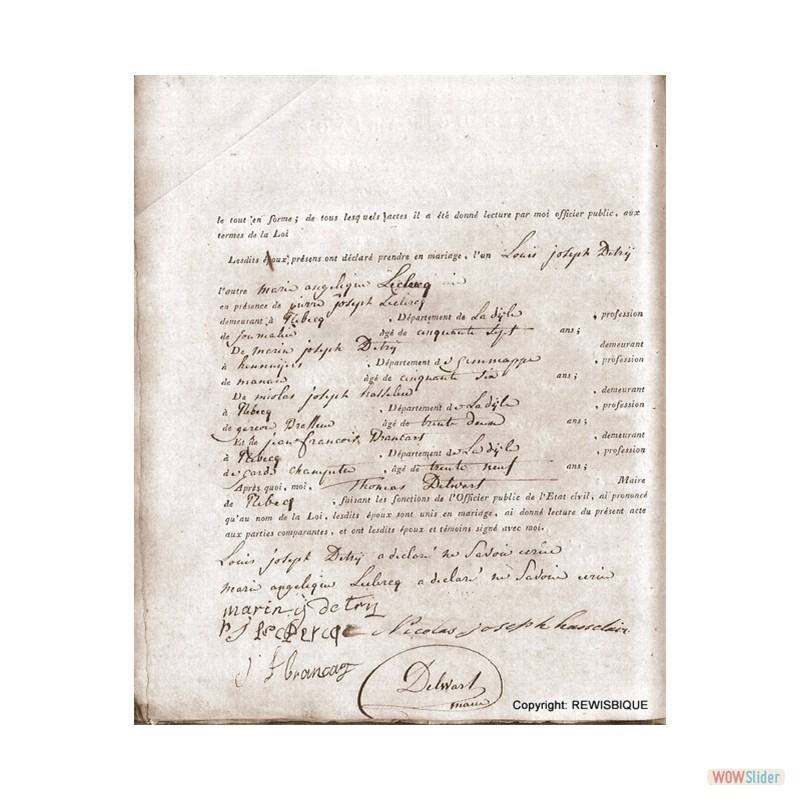 le tout en forme; de tous lesquels actes il a été donné lecture par moi officier public, aux
termes de la Loi
Lesdits époux présens ont déclaré prendre en mariage, l'un Louis joseph Detrÿ
l'autre marie angelique Leclercq
en présence de pierre joseph Leclercq
demeurant à Rebecq , Département de La dyle , profession
de journalier âgé de cinquante sept ans;
De marin joseph Detrÿ demeurant
à hennuÿeres , Département de Gemmappe , profession
de âgé de cinquante six ans;
De nicolas joseph hasselein , demeurant
à Rebecq , Département de La dyle , profession
de garcon Brasseur âgé de trente deux ans;
Et de jean francois Brancart , demeurant
à Rebecq , Département de La dyle , profession
de garde champetre , âgé de trente neuf ans;
Après quoi, moi, Thomas Delwart Maire
de Rebecq , faisant les fonctions de l'Officier public de l'Etat civil, ai prononcé
qu'au nom de la Loi, lesdits époux sont unis en mariage, ai donné lecture du présent acte
aux parties comparantes, et ont lesdits époux et témoins signé avec moi.
Louis joseph Detrÿ a declaré ne Savoir ecrire
marie angelique Leclercq a declaré ne Savoir ecrire
marin j detry
p J lecLercqe Nicolas joseph hasselain
j f brancart
Delwart
maire
Copyright: REWISBIQUE
WOWSlider